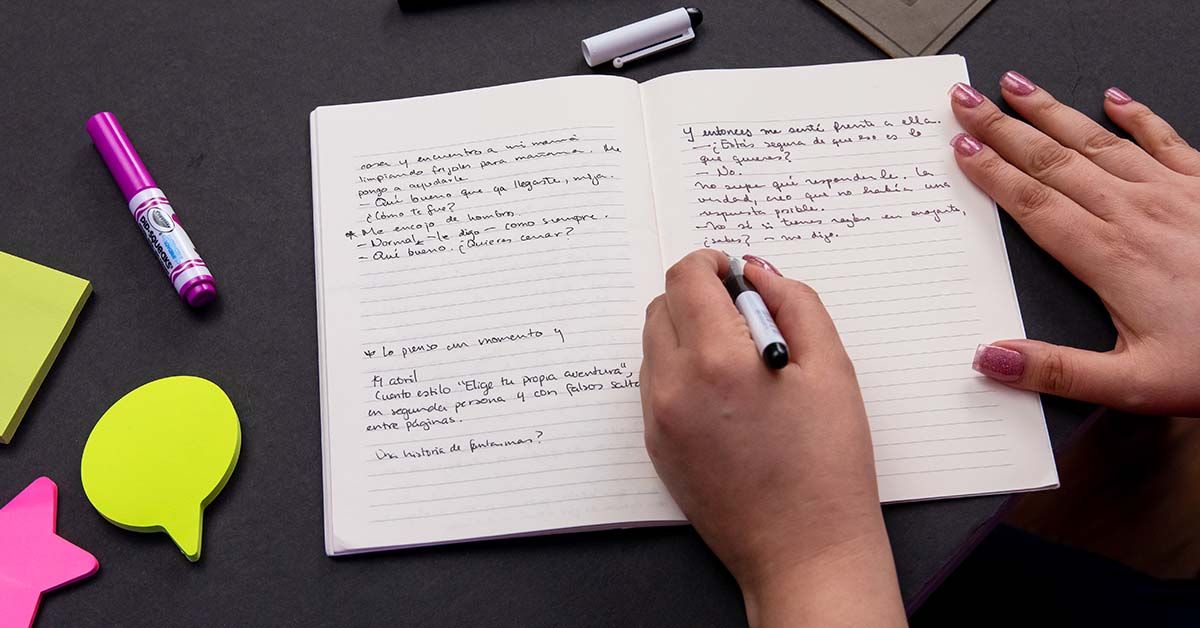 cosa y encuentro a mi mamá
limpiando frijoles para mañana. Me
pongo a ayudarle
– Qué bueno que ya llegaste, mija.
¿Cómo te fue?
* Me encojo de hombros
– Normal * – le digo – como siempre.
– Qué bueno. ¿Quieres cenar?
* Lo pienso un momento y
19 abril
Cuento estilo "Elige tu propia aventura",
en segunda persona y con falsos salto
entre páginas.
Una historia de fantasmas?
Y entonces me sentí frente a ella.
– ¿Estás segura de que eso es lo
que quieres?
– No.
No supe qué responderle. La
verdad, creo que no había una
respuesta posible.
– No sé si tienes razón en enojarte,
¿sabes? – me dijo.
Crayola
PIP-SQUEAKS